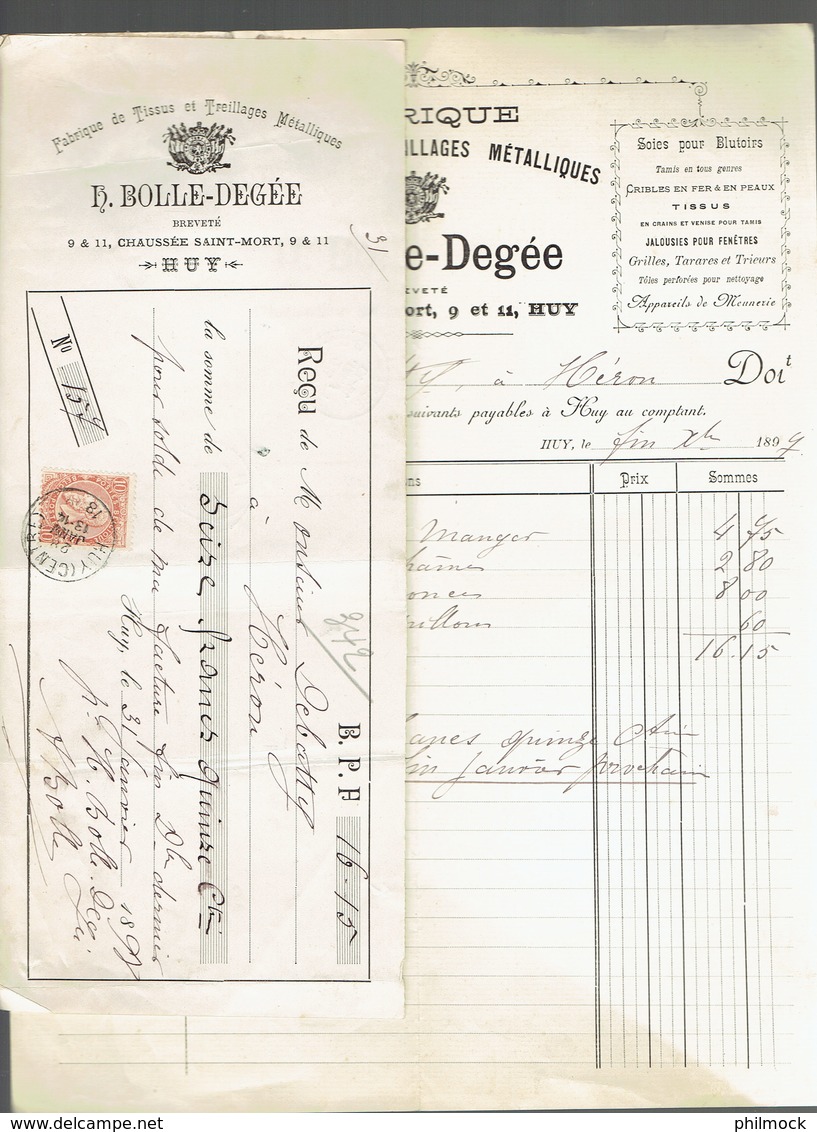 Fabrique de Tissus et Treillages Métalliques
H. BOLLE-DEGÉE
BREVETÉ
9 & 11, CHAUSSÉE SAINT-MORT, 9 & 11
HUY
31
No 157
B. P. F 16-15
342
Reçu de Monsieur Debatty
à Héron
la somme de Seize francs quinze Ctm
pour solde de ma facture fin Dbre dernier
Huy, le 31 Janvier 189
po H. Bolle-Deg
HUY (CENTRE)
JANV
13-14
RIQUE
ILLAGES MÉTALLIQUES
e-Degée
REVETÉ
ort, 9 et 11, HUY
Soies pour Blutoirs
Tamis en tous genres
CRIBLES EN FER & EN PEAUX
TISSUS
EN CRAINS ET VENISE POUR TAMIS
JALOUSIES POUR FENÊTRES
Grilles, Tarares et Trieurs
Tôles perforées pour nettoyage
Appareils de Meunerie
ty, à Héron Doit
suivants payables à Huy au comptant.
HUY, le fin Xbre 1899
ns Prix Sommes
Manger 4 75
2 80
8 00
60
16.15
quinze Ctm
fin Janvier prochain
delcampe.net
philmock